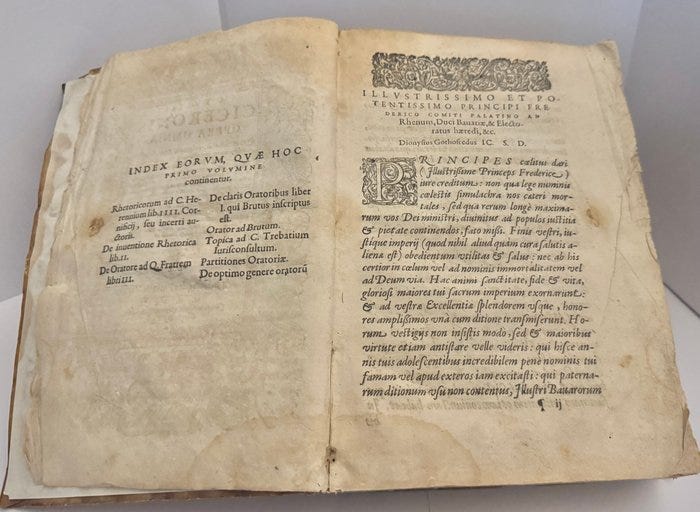 INDEX EORVM, QVÆ HOC
PRIMO VOLVMINE
continentur.
Rhetoricorum ad C. He-
rennium lib. IIII. Cor-
nificij, seu incerti au-
ctoris.
De inuentione Rhetorica
lib. II.
De Oratore ad Q. Fratrem
libri III.
De claris Oratoribus liber
I. qui Brutus inscriptus
est.
Orator ad Brutum.
Topica ad C. Trebatium
Iurisconsultum.
Partitiones Oratoriæ.
De optimo genere oratorũ
ILLVSTRISSIMO ET PO-
TENTISSIMO PRINCIPI FRE-
DERICO COMITI PALATINO AD
Rhenum, Duci Bauariæ, & Electo-
ratus hæredi, &c.
Dionysius Gothofredus IC. S. D.
PRINCIPES cælitus dari
(Illustrissime Princeps Frederice,)
iure creditum: non qua lege numinis
cælestis simulachra nos cæteri mor-
tales, sed qua rerum longè maxima-
rum vos Dei ministri, diuinitus ad populos iustitia
& pietate continendos, fato missi. Finis vestri, iu-
stique imperij (quod nihil aliud quàm cura salutis a-
liena est) obedientum vtilitas & salus: nec ab his
certior in cælum vel ad nominis immortalitatem vel
ad Deum via. Hac animi sanctitate, fide & vita,
gloriosi maiores tui sacrum imperium exornarunt:
& ad vestræ Excellentiæ splendorem vsque, hono-
res amplissimos vnà cum ditione transmiserunt. Ho-
rum vestigijs non insistis modo, sed & maioribus
virtute etiam antistare velle videris: qui hisce an-
nis tuis adolescentibus incredibilem penè nominis tui
famam vel apud exteros iam excitasti: qui paterna-
rum ditionum vsu non contentus, Illustri Bauarorum
¶ ij